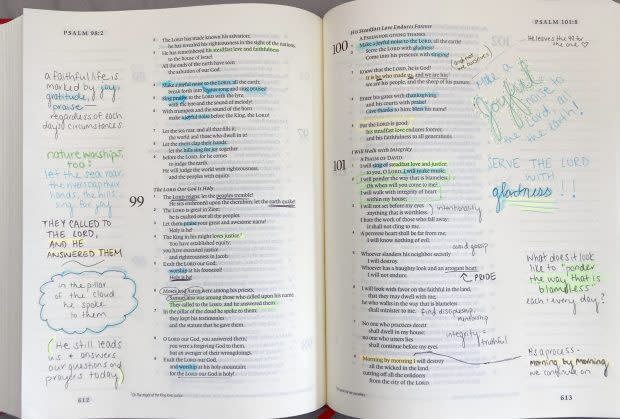 PSALM 98:2
2 The LORD has made known his salvation;
he has revealed his righteousness in the sight of the nations.
3 He has remembered his steadfast love and faithfulness
to the house of Israel.
All the ends of the earth have seen
the salvation of our God.
4 Make a joyful noise to the LORD, all the earth;
break forth into joyous song and sing praises!
5 Sing praises to the LORD with the lyre,
with the lyre and the sound of melody!
6 With trumpets and the sound of the horn
make a joyful noise before the King, the LORD!
7 Let the sea roar, and all that fills it;
the world and those who dwell in it!
8 Let the rivers clap their hands;
let the hills sing for joy together
9 before the LORD, for he comes
to judge the earth.
He will judge the world with righteousness,
and the peoples with equity.
The LORD Our God Is Holy
99 The LORD reigns; let the peoples tremble!
He sits enthroned upon the cherubim; let the earth quake!
2 The LORD is great in Zion;
he is exalted over all the peoples.
3 Let them praise your great and awesome name!
Holy is he!
4 The King in his might loves justice.
You have established equity;
you have executed justice
and righteousness in Jacob.
5 Exalt the LORD our God;
worship at his footstool!
Holy is he!
6 Moses and Aaron were among his priests,
Samuel also was among those who called upon his name.
They called to the LORD, and he answered them.
7 In the pillar of the cloud he spoke to them;
they kept his testimonies
and the statute that he gave them.
8 O LORD our God, you answered them;
you were a forgiving God to them,
but an avenger of their wrongdoings.
9 Exalt the LORD our God,
and worship at his holy mountain;
for the LORD our God is holy!
612
a faithful life is
marked by joy,
gratitude,
praise —
regardless of each
day's circumstances.
nature worships,
too!
let the sea roar,
the rivers clap their
hands, the hills
sing for joy
THEY CALLED TO
THE LORD,
AND HE
ANSWERED THEM
in the pillar
of the cloud
he spoke
to them
(He still leads
us + answers
our questions and
prayers today)
PSALM 101:8
His Steadfast Love Endures Forever
100 A PSALM FOR GIVING THANKS.
Make a joyful noise to the LORD, all the earth!
2 Serve the LORD with gladness!
Come into his presence with singing!
3 Know that the LORD, he is God!
It is he who made us, and we are his;
we are his people, and the sheep of his pasture.
4 Enter his gates with thanksgiving,
and his courts with praise!
Give thanks to him; bless his name!
5 For the LORD is good;
his steadfast love endures forever,
and his faithfulness to all generations.
I Will Walk with Integrity
101 A PSALM OF DAVID.
I will sing of steadfast love and justice;
to you, O LORD, I will make music.
2 I will ponder the way that is blameless.
Oh when will you come to me?
I will walk with integrity of heart
within my house;
3 I will not set before my eyes
anything that is worthless.
I hate the work of those who fall away;
it shall not cling to me.
4 A perverse heart shall be far from me;
I will know nothing of evil.
5 Whoever slanders his neighbor secretly
I will destroy.
Whoever has a haughty look and an arrogant heart
I will not endure.
6 I will look with favor on the faithful in the land,
that they may dwell with me;
he who walks in the way that is blameless
shall minister to me.
7 No one who practices deceit
shall dwell in my house;
no one who utters lies
shall continue before my eyes.
8 Morning by morning I will destroy
all the wicked in the land,
cutting off all the evildoers
from the city of the LORD.
613
He leaves the 99 for
the one
Make a
Joyful
noise to
the Lord, all
the earth!
SERVE THE LORD
WITH
gladness!!
intentionality
avoid gossip
PRIDE
find discipleship,
mentorship
integrity
truthful
What does it look
like to "ponder
the way that is
blameless"
each + every day?
It's a process -
morning by morning
we continue on